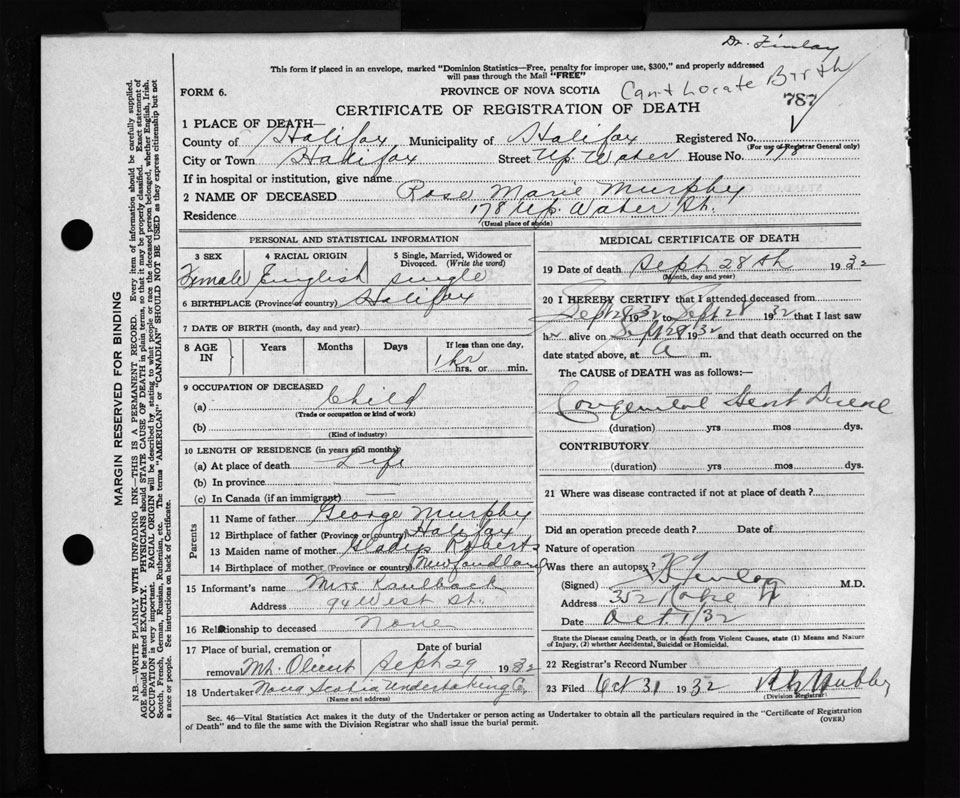 Dr. Finlay
This form if placed in an envelope, marked "Dominion Statistics—Free, penalty for improper use, $300," and properly addressed
will pass through the Mail "FREE"
FORM 6.
PROVINCE OF NOVA SCOTIA
Can't Locate Birth
787
CERTIFICATE OF REGISTRATION OF DEATH
1 PLACE OF DEATH—
County of Halifax Municipality of Halifax Registered No.
(For use of Registrar General only)
City or Town Halifax Street Up. Water House No. 178
If in hospital or institution, give name
2 NAME OF DECEASED Rose Marie Murphy
Residence 178 Up. Water St.
(Usual place of abode)
PERSONAL AND STATISTICAL INFORMATION
3 SEX 4 RACIAL ORIGIN 5 Single, Married, Widowed or Divorced. (Write the word)
Female English single
6 BIRTHPLACE (Province or country) Halifax
7 DATE OF BIRTH (month, day and year)
8 AGE IN Years Months Days If less than one day,
1 hr hrs. or min.
9 OCCUPATION OF DECEASED
(a) Child
(Trade or occupation or kind of work)
(b)
(Kind of industry)
10 LENGTH OF RESIDENCE (in years and months)
(a) At place of death Life
(b) In province
(c) In Canada (if an immigrant)
Parents
11 Name of father George Murphy
12 Birthplace of father (Province or country) Halifax
13 Maiden name of mother Gladys Roberts
14 Birthplace of mother (Province or country) Newfoundland
15 Informant's name Mrs Kaulback
Address 94 West St.
16 Relationship to deceased None
17 Place of burial, cremation or removal Mt. Olivet
Date of burial Sept 29 1932
18 Undertaker Nova Scotia Undertaking Co.
(Name and address)
MEDICAL CERTIFICATE OF DEATH
19 Date of death Sept 28th 1932
(Month, day and year)
20 I HEREBY CERTIFY that I attended deceased from
Sept 28 1932 to Sept 28 1932 that I last saw
h alive on Sept 28 1932 and that death occurred on the
date stated above, at a m.
The CAUSE of DEATH was as follows:—
Congenital Heart Disease
(duration) yrs mos dys.
CONTRIBUTORY
(duration) yrs mos dys.
21 Where was disease contracted if not at place of death?
Did an operation precede death? Date of
Nature of operation
Was there an autopsy?
(Signed) Finlay M.D.
Address 352
Date Oct 1/32
State the Disease Causing Death, or in death from Violent Causes, state (1) Means and Nature
of Injury, (2) whether Accidental, Suicidal or Homicidal.
22 Registrar's Record Number
23 Filed Oct 31 1932
(Division Registrar)
Sec. 46—Vital Statistics Act makes it the duty of the Undertaker or person acting as Undertaker to obtain all the particulars required in the "Certificate of Registration
of Death" and to file the same with the Division Registrar who shall issue the burial permit.
(OVER)
MARGIN RESERVED FOR BINDING
N.B.—WRITE PLAINLY WITH UNFADING INK—THIS IS A PERMANENT RECORD. Every item of information should be carefully supplied.
AGE should be stated EXACTLY. PHYSICIANS should STATE CAUSE OF DEATH in plain terms, so that it may be properly classified. Exact statement of
OCCUPATION is very important. RACIAL ORIGIN will be described by stating to what people or race the deceased person belonged, whether English, Irish,
Scotch, French, German, Russian, Ruthenian, etc. The terms "AMERICAN" or "CANADIAN" SHOULD NOT BE USED as they express citizenship but not
a race or people. See instructions on back of Certificate.